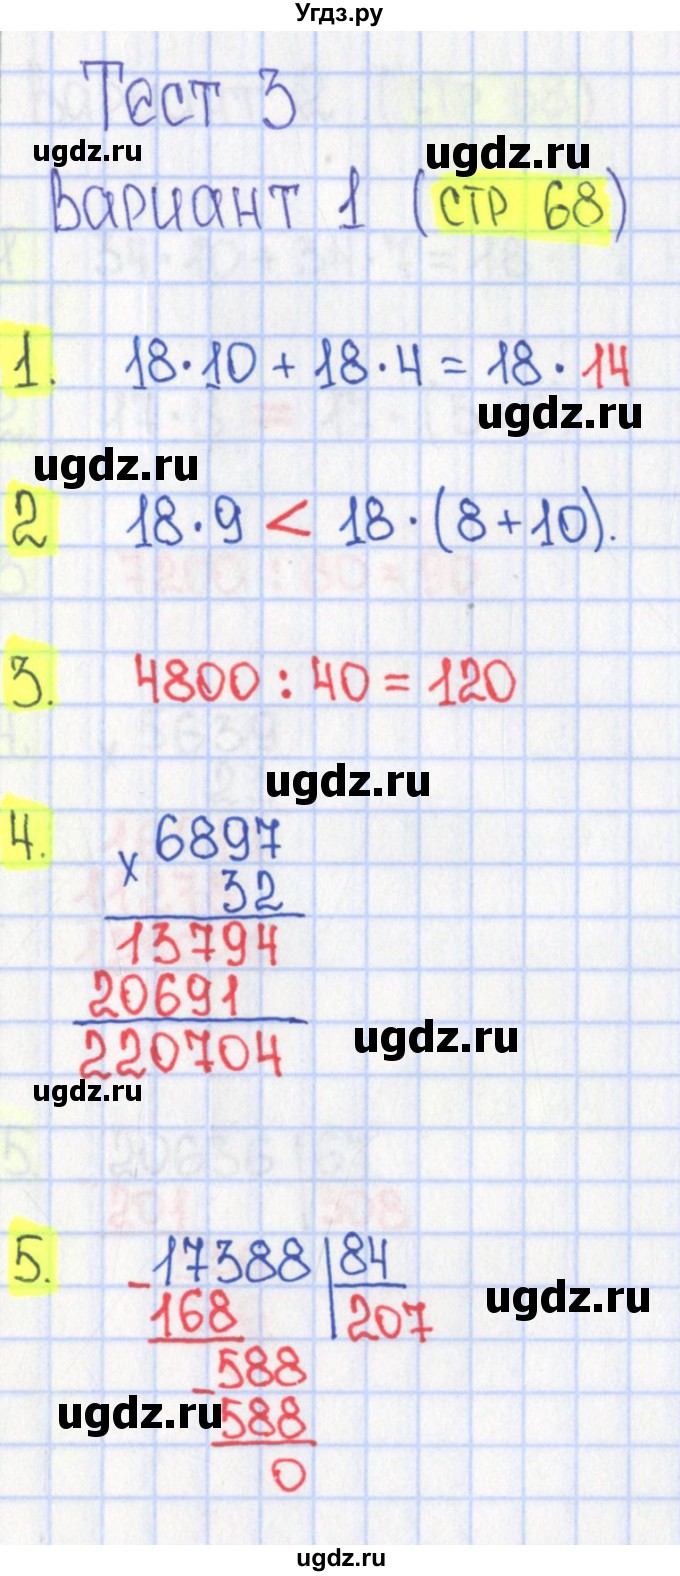 Угдз.ру
Тест 3
ugdz.ru ugdz.ru
вариант 1 (стр 68)
1. 18·10 + 18·4 = 18·14
ugdz.ru
ugdz.ru
2 18·9 < 18·(8+10).
3. 4800 : 40 = 120
ugdz.ru
4. × 6897
32
13794
20691
220704
ugdz.ru
ugdz.ru
5. - 17388 | 84
168 207
ugdz.ru
- 588
588
ugdz.ru
0
ugdz.ru